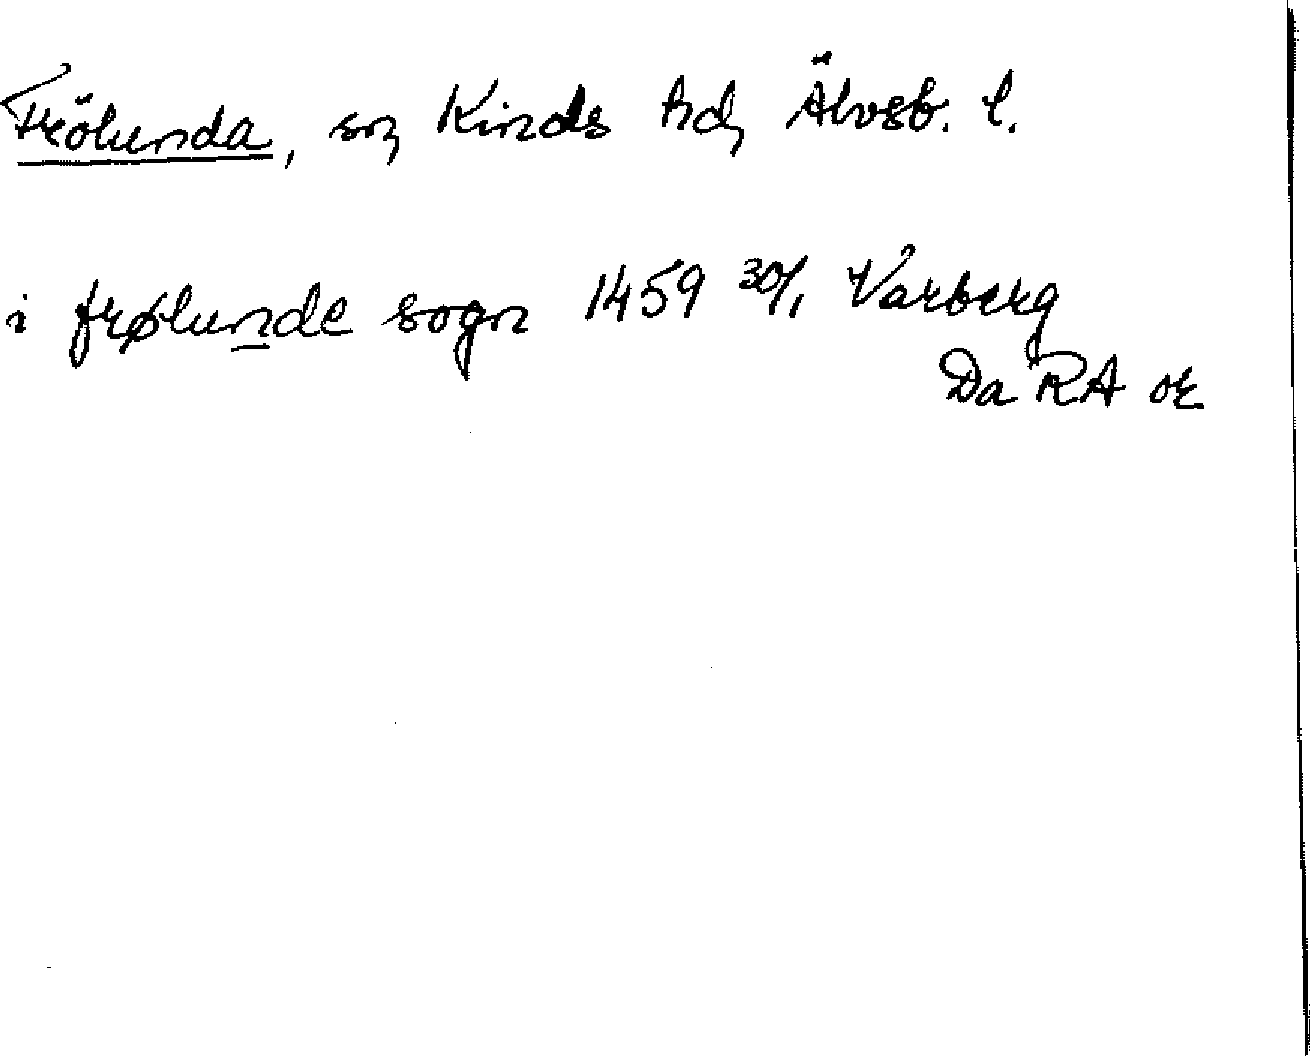 Frölunda, sn, Kinds hd, Älvsb. l.
i frølunde sogn 1459 30/1 Varberg
Da RA or